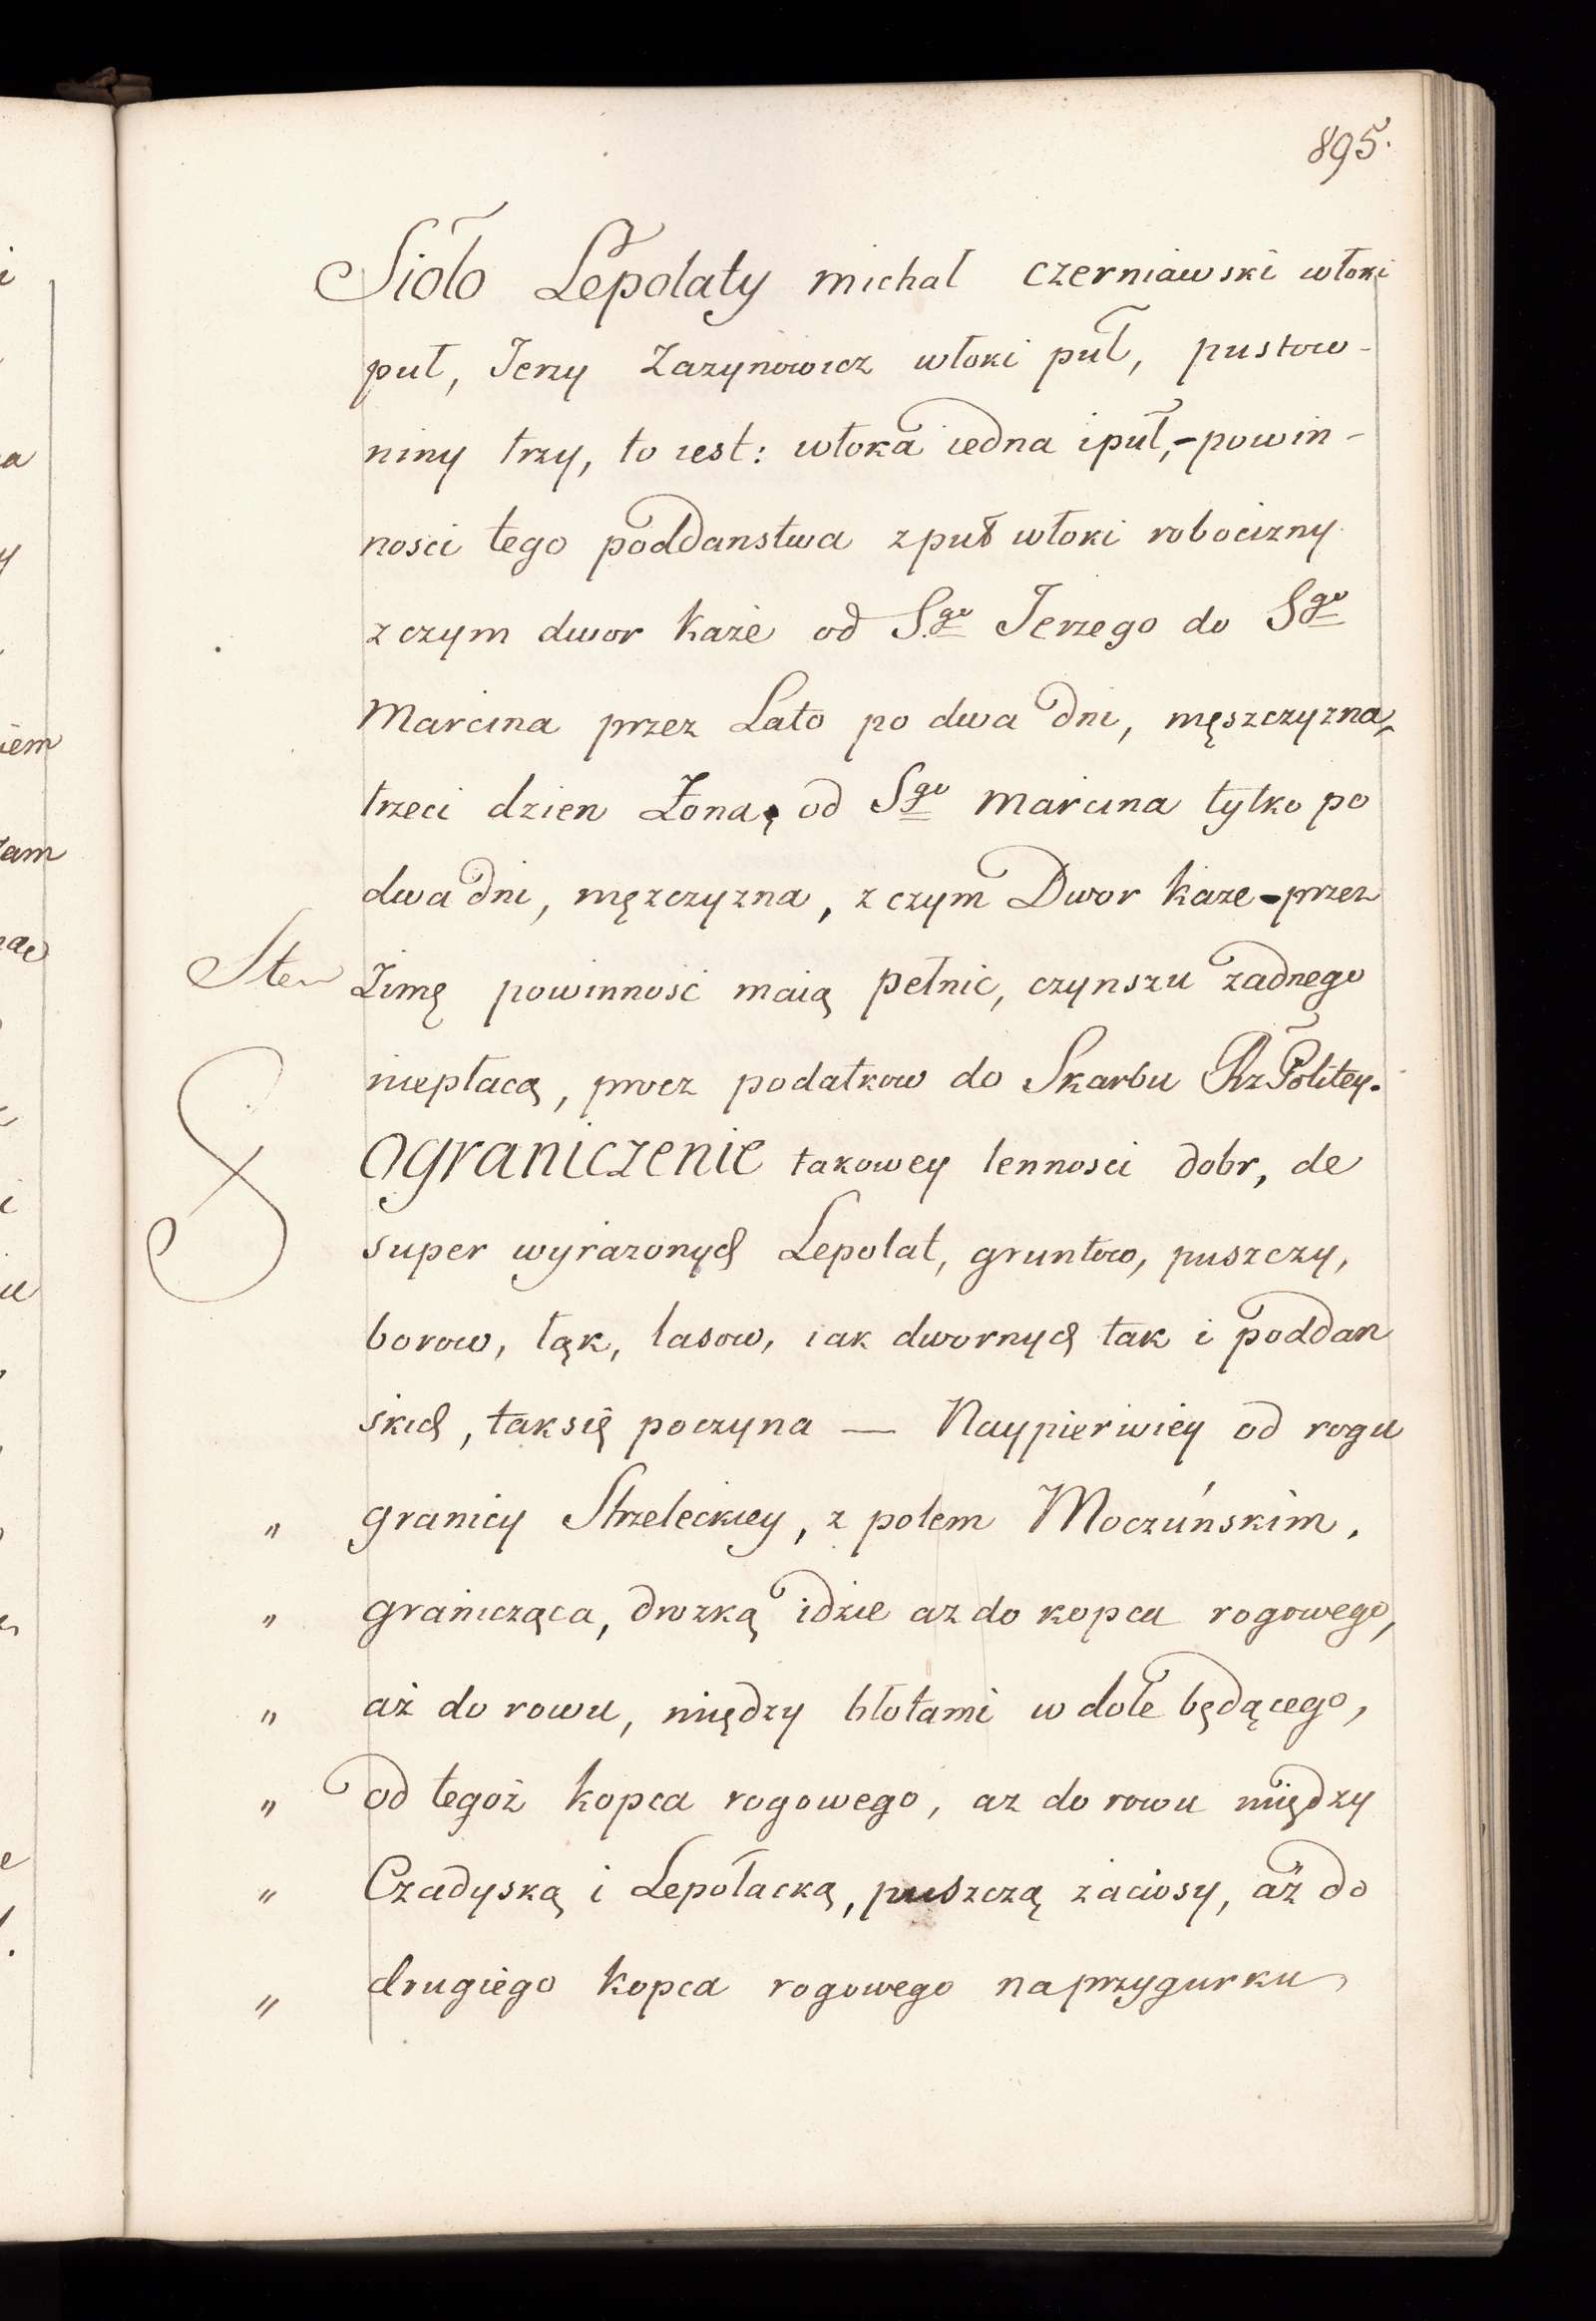 895.
Siolo Lepolaty michal czerniawski włoki
puł, Jerzy Zazynowicz włoki puł, pustow-
niny trzy, to iest: włoka iedna ipuł,-powin-
nosci tego poddanstwa zpuł włoki robocizny
z czym dwor każe od S.go Jerzego do Sgo
Marcina przez Lato po dwa dni, męszczyzna,
trzeci dzien Żona, od Sgo Marcina tylko po
dwa dni, męzczyzna, z czym Dwor kaze-przez
Zimę powinność maią pełnic, czynszu zadnego
niepłacą, procz podatkow do Skarbu RzPolitey.
Ograniczenie takowey lennosci dobr, de
super wyrazonych Lepolat, gruntow, puszczy,
borow, łąk, lasow, iak dwornych tak i poddan
skich, taksię poczyna — Naypierwiey od rogu
" granicy Strzeleckiey, z polem Moczuńskim,
" granicząca, drozką idzie az do kopca rogowego,
" aż do rowu, między błotami w dole będącego,
" od tegoż kopca rogowego, az do rowu między
" Czadyską i Lepołacką, puszczą zaciosy, aż do
" drugiego kopca rogowego naprzygurku